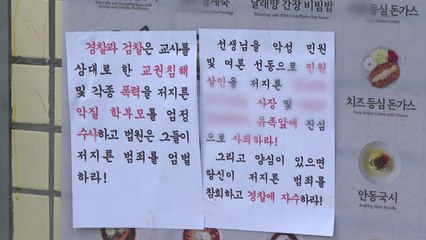 달래향 간장 비빔밥
등심 돈가스
Pork Sirloin Cutlet
경찰과 검찰은 교사를
상대로 한 교권침해
및 각종 폭력을 저지른
악질 학부모를 엄전
수사하고 법원은 그들이
저지른 범죄를 엄벌
하라!
선생님을 악성 민원
및 여론 선동으로 민원
살인을 저지른
사장 및
유족앞에 진심
으로 사죄하라!
그리고 양심이 있으면
당신이 저지른 범죄를
참회하고 경찰에 자수하라!
치즈등심 돈가스
안동국시